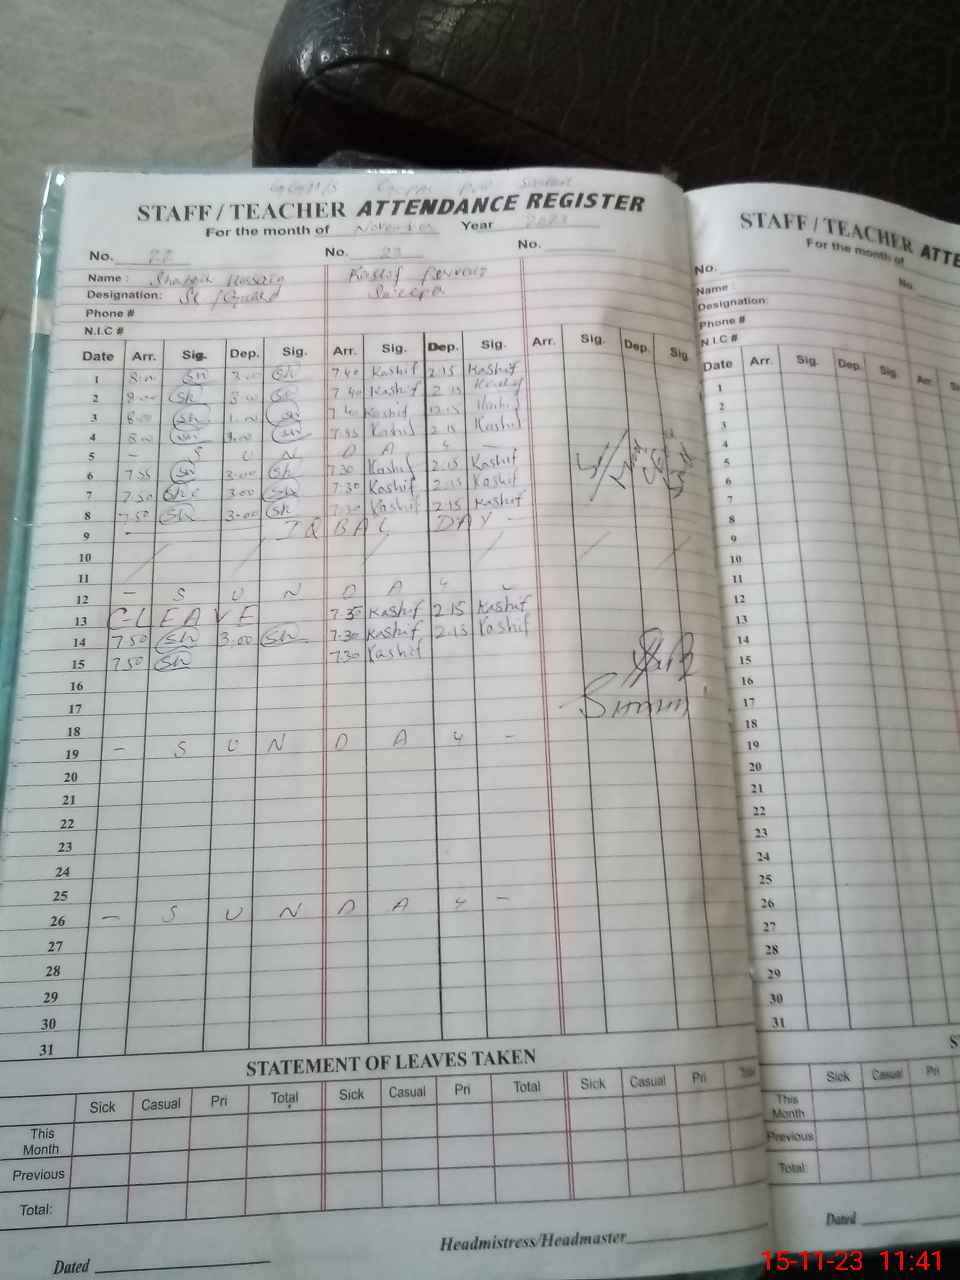 STAFF / TEACHER ATTENDANCE REGISTER
For the month of November Year 2023
No. 22 No. 23 No.
Name : Shabbir Hussain Kashif
Designation: Sweeper
Phone #
N.I.C #
Date Arr. Sig. Dep. Sig. Arr. Sig. Dep. Sig. Arr. Sig. Dep. Sig.
1 8:00 Sh 3:00 Sh 7.40 Kashif 2.15 Kashif
2 8:00 Sh 3:00 Sh 7.40 Kashif 2.15 Kashif
3 8:00 Sh 1:00 Sh 7.40 Kashif 12.15 Kashif
4 8:00 Sh 3:00 Sh Kashif 2.15 Kashif
5 - S U N D A Y -
6 7.55 Sh 3.00 Sh 7.30 Kashif 2.15 Kashif
7 7.50 Sh 3.00 Sh 7.30 Kashif 2.15 Kashif
8 7.50 Sh 3.00 Sh 7.30 Kashif 2.15 Kashif
9 - IQBAL DAY -
10
11
12 - S U N D A Y -
13 C-LEAVE 7.35 Kashif 2.15 Kashif
14 7.50 Sh 3.00 Sh 7.30 Kashif 2.15 Kashif
15 7.50 Sh 7.30 Kashif
16
17
18
19 - S U N D A Y -
20
21
22
23
24
25
26 - S U N D A Y -
27
28
29
30
31
STATEMENT OF LEAVES TAKEN
Sick Casual Pri Total Sick Casual Pri Total Sick Casual Pri Total
This Month
Previous
Total:
Headmistress/Headmaster
Dated
STAFF / TEACHER ATTE
For the month of
No. No.
Name :
Designation:
Phone #
N.I.C #
Date Arr. Sig. Dep. Sig. Arr. Sig.
1
2
3
4
5
6
7
8
9
10
11
12
13
14
15
16
17
18
19
20
21
22
23
24
25
26
27
28
29
30
31
S
Sick Casual Pri
This Month
Previous
Total:
Dated
15-11-23 11:41